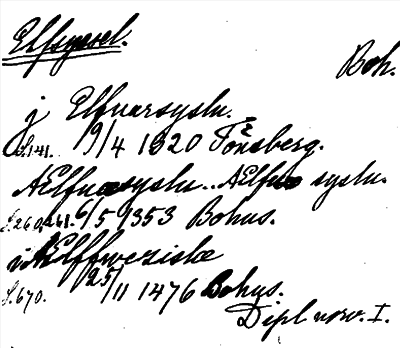 Elfsyssel.
Boh.
j Elfuarsyslu.
S.141. 9/4 1320 Tönsberg.
AElfuasyslu.. AElfua syslu.
S.260.261. 6/5 1353 Bohus.
i AElffwezislæ
S.670. 25/11 1476 Bohus.
Dipl. norv. I.